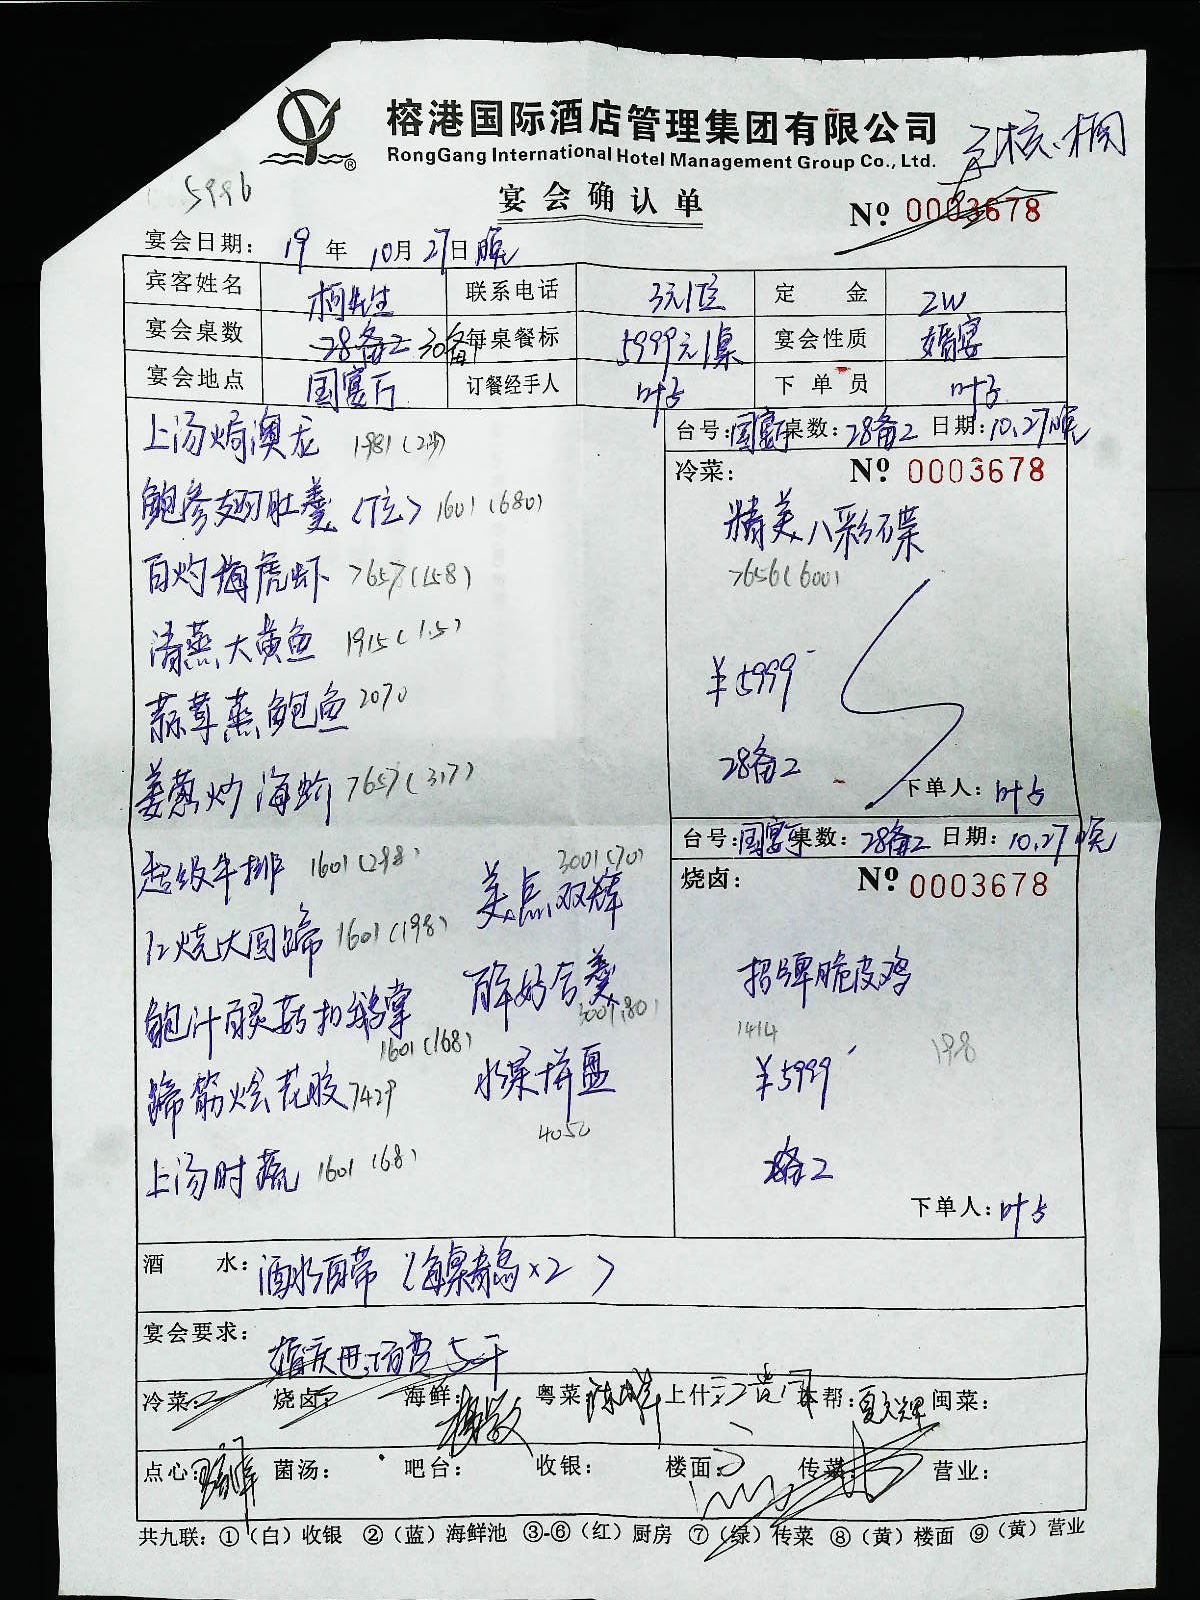 榕港国际酒店管理集团有限公司
RongGang International Hotel Management Group Co., Ltd.
5996
宴会确认单
№ 0003678
宴会日期: 19 年 10月 27日 晚
宾客姓名 柯先生 联系电话 3元/位 定金 2W
宴会桌数 28备2 30备 每桌餐标 5999元/桌 宴会性质 婚宴
宴会地点 国宴厅 订餐经手人 叶占 下单员 叶占
上汤焗澳龙 1981(2斤)
鲍参翅肚羹(位) 1601(680)
白灼海虎虾 7657(158)
清蒸大黄鱼 1915(1.5)
蒜茸蒸鲍鱼 2070
姜葱炒海蚧 7657(317)
超级牛排 1601(298)
红烧大圆蹄 1601(198)
鲍汁百灵菇扣鹅掌 1601(168)
蹄筋烩花胶 7429
上汤时蔬 1601(68)
美点双辉 3001(70)
百年好合羹
水果拼盘 4050
台号: 国宴厅 桌数: 28备2 日期: 10.27晚
冷菜: № 0003678
精美八彩碟
7656(600)
¥5999
28备2
下单人: 叶占
台号: 国宴厅 桌数: 28备2 日期: 10.27晚
烧卤: № 0003678
招牌脆皮鸡
1414 198
¥5999
备2
下单人: 叶占
酒水: 酒水自带
宴会要求: 婚庆
冷菜: 烧卤: 海鲜: 粤菜: 上什: 本帮: 闽菜:
点心: 菌汤: 吧台: 收银: 楼面: 传菜: 营业:
共九联: ①(白)收银 ②(蓝)海鲜池 ③-⑥(红)厨房 ⑦(绿)传菜 ⑧(黄)楼面 ⑨(黄)营业